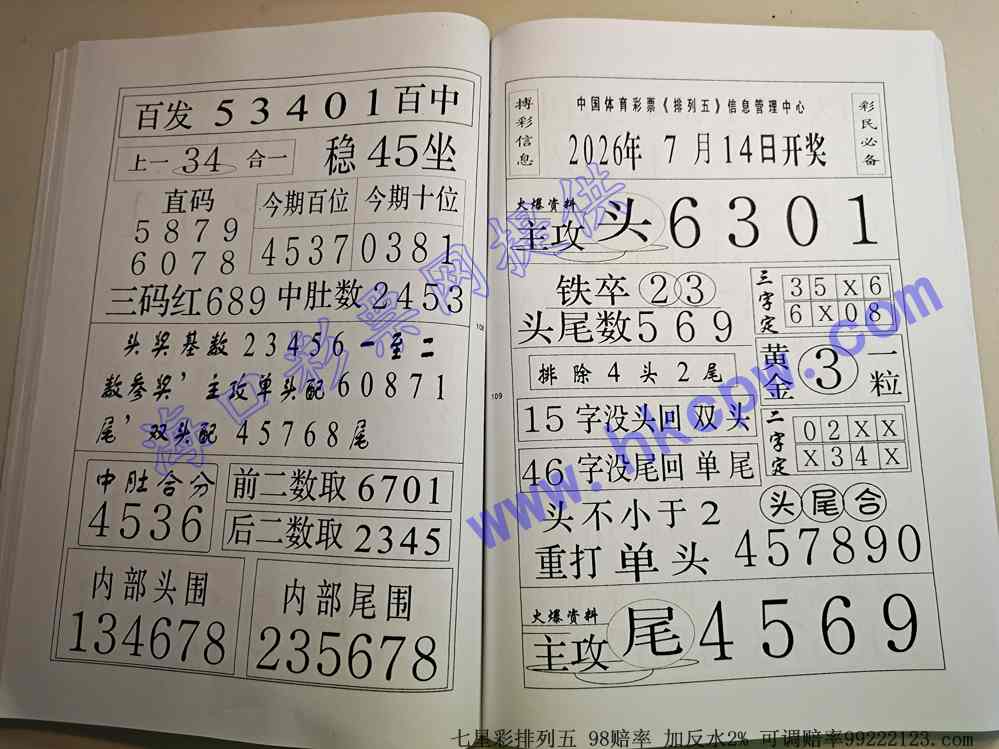 百发 53401 百中
上一 34 合一
稳 45 坐
直码
5879
6078
今期百位
4537
今期十位
0381
三码红689
中肚数2453
头奖基数23456一至二
数参奖’主攻单头配60871
尾’双头配45768尾
中肚合分
4536
前二数取6701
后二数取2345
内部头围
134678
内部尾围
235678
108
109
搏彩信息
中国体育彩票《排列五》信息管理中心
2026年 7 月14日开奖
彩民必备
火爆资料
主攻 头 6301
铁卒 2 3
头尾数569
排除4头2尾
15字没头回双头
46字没尾回单尾
头不小于2
重打单头 457890
三字定
35X6
6X08
黄金 3 一粒
二字定
02XX
X34X
头尾合
火爆资料
主攻 尾 4569
海口彩票网提供
www.hkcpw.com
七星彩排列五 98赔率 加反水2% 可调赔率99222123.com